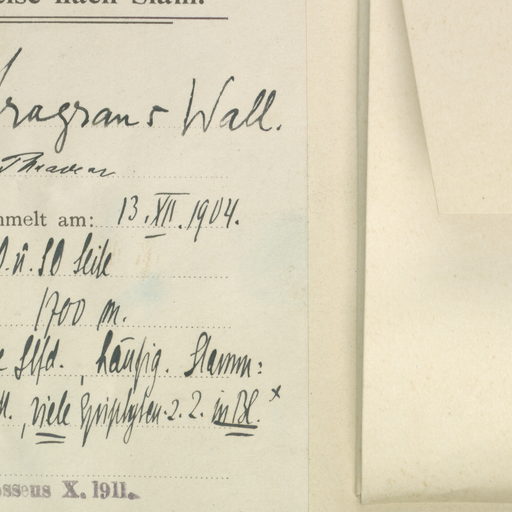 nach Siam.
fragrans Wall.
mmelt am: 13. XII. 1904.
u. SO Seite
1700 m.
häufig. Stamm:
, viele Epiphyten. z. Z. in Bl. x
osseus X. 1911.